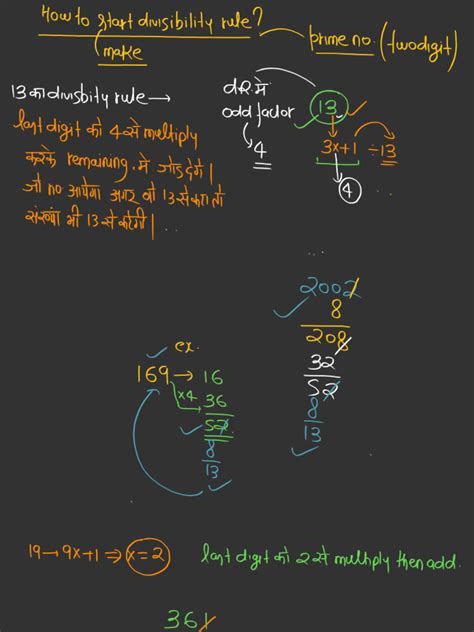 How to start divisibility rule?
(make
prime no. (twodigit)
13 का divisbity rule →
last digit को 4 से multiply
करके remaining में जोड़ देंगे।
जो no आयेगा अगर वो 13 से कटा तो
संख्या भी 13 से कटेगी।
DR में
odd factor
4
13
3x+1 ÷13
4
2002
8
208
32
52
8
13
ex.
169 → 16
x4 36
52
8
13
19 → 9x+1 ⇒ x=2
last digit को 2 से multiply then add.
361